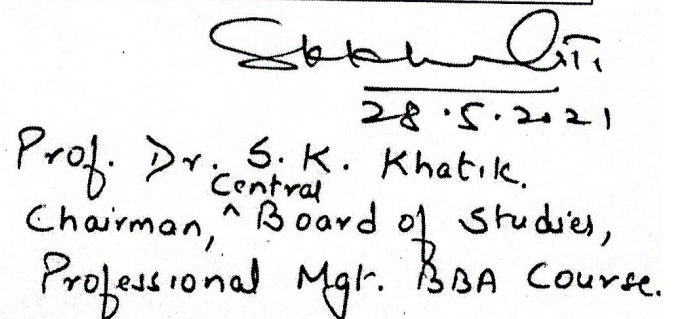 28.5.2021
Prof. Dr. S. K. Khatik.
Central
Chairman, ^ Board of Studies,
Professional Mgt. BBA Course.